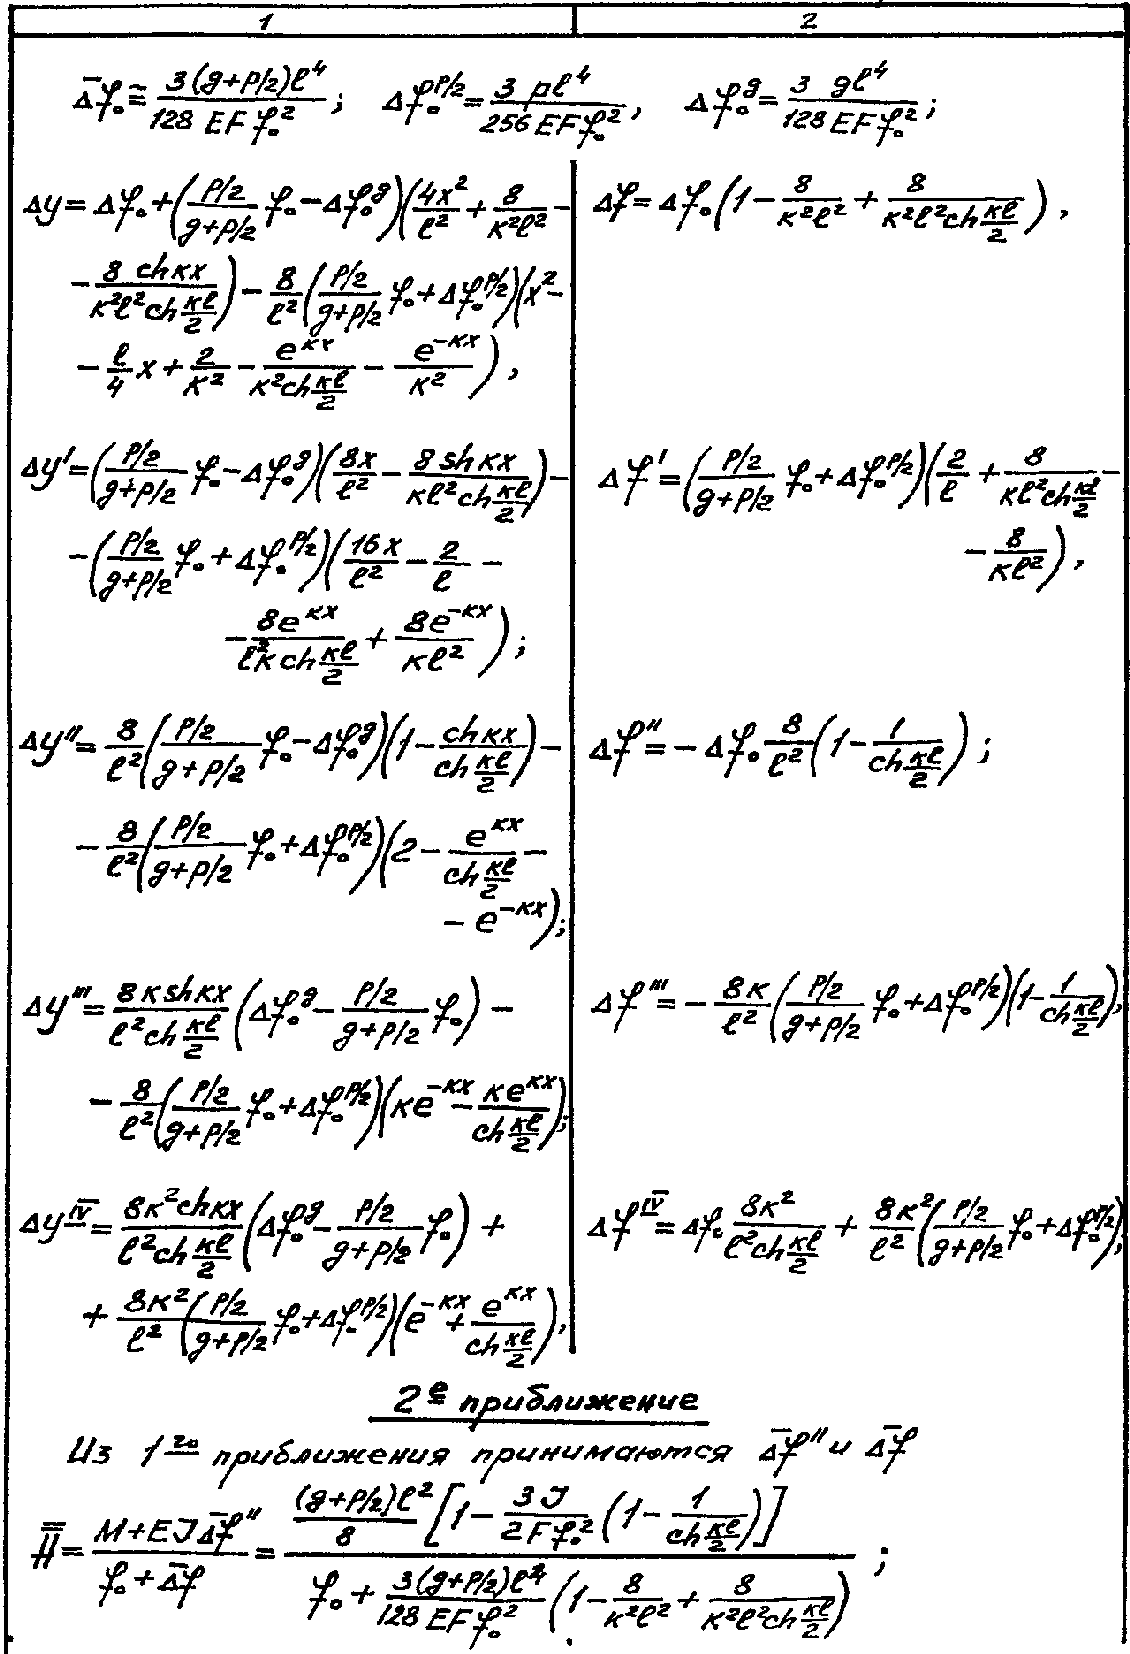 1 2
Δ̄f₀ ≅ 3(g+p/2)ℓ⁴ / 128 EFf₀² ; Δf₀^{p/2} = 3 pℓ⁴ / 256 EFf₀² , Δf₀^g = 3 gℓ⁴ / 128 EFf₀² ;
Δy = Δf₀ + (p/2 / (g+p/2) f₀ − Δf₀^g)(4x²/ℓ² + 8/κ²ℓ² −
− 8 ch κx / (κ²ℓ² ch κℓ/2)) − 8/ℓ² (p/2 / (g+p/2) f₀ + Δf₀^{p/2})(x² −
− ℓ/4 x + 2/κ² − e^{κx} / (κ² ch κℓ/2) − e^{−κx}/κ²) ,
Δf = Δf₀ (1 − 8/κ²ℓ² + 8 / (κ²ℓ² ch κℓ/2)) ,
Δy′ = (p/2 / (g+p/2) f₀ − Δf₀^g)(8x/ℓ² − 8 sh κx / (κℓ² ch κℓ/2)) −
− (p/2 / (g+p/2) f₀ + Δf₀^{p/2})(16x/ℓ² − 2/ℓ −
− 8e^{κx} / (ℓ²κ ch κℓ/2) + 8e^{−κx} / κℓ²) ;
Δf′ = (p/2 / (g+p/2) f₀ + Δf₀^{p/2})(2/ℓ + 8 / (κℓ² ch κℓ/2) −
− 8/κℓ²) ,
Δy″ = 8/ℓ² (p/2 / (g+p/2) f₀ − Δf₀^g)(1 − ch κx / ch κℓ/2) −
− 8/ℓ² (p/2 / (g+p/2) f₀ + Δf₀^{p/2})(2 − e^{κx} / ch κℓ/2 −
− e^{−κx}) ;
Δf″ = − Δf₀ 8/ℓ² (1 − 1 / ch κℓ/2) ;
Δy‴ = 8κ sh κx / (ℓ² ch κℓ/2) (Δf₀^g − p/2 / (g+p/2) f₀) −
− 8/ℓ² (p/2 / (g+p/2) f₀ + Δf₀^{p/2})(κe^{−κx} − κe^{κx} / ch κℓ/2) ;
Δf‴ = − 8κ/ℓ² (p/2 / (g+p/2) f₀ + Δf₀^{p/2})(1 − 1 / ch κℓ/2) ,
Δy^{IV} = 8κ² ch κx / (ℓ² ch κℓ/2) (Δf₀^g − p/2 / (g+p/2) f₀) +
+ 8κ²/ℓ² (p/2 / (g+p/2) f₀ + Δf₀^{p/2})(e^{−κx} + e^{κx} / ch κℓ/2) ,
Δf^{IV} = Δf₀ 8κ² / (ℓ² ch κℓ/2) + 8κ²/ℓ² (p/2 / (g+p/2) f₀ + Δf₀^{p/2}) ;
2е приближение
Из 1го приближения принимаются Δ̄f″ и Δ̄f
H̿ = (M + EJΔ̄f″) / (f₀ + Δ̄f) = (g+p/2)ℓ²/8 [1 − 3J / 2Ff₀² (1 − 1 / ch κℓ/2)] / (f₀ + 3(g+p/2)ℓ⁴ / 128 EFf₀² (1 − 8/κ²ℓ² + 8 / (κ²ℓ² ch κℓ/2))) ;